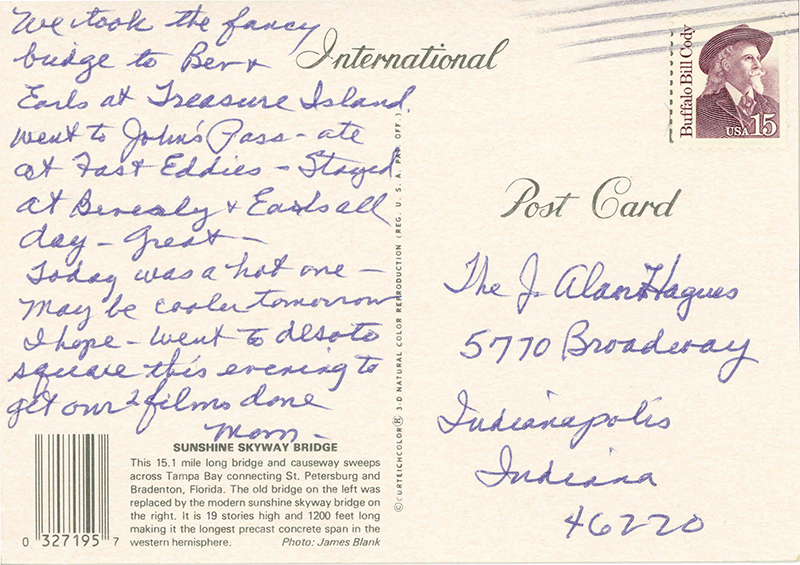 We took the fancy
bridge to Bev &
Earls at Treasure Island,
went to John's Pass - ate
at Fast Eddies - Stayed
at Beverly & Earls all
day - great -
Today was a hot one -
May be cooler tomorrow
I hope - went to desoto
square this evening to
get our 2 films done
Mom -
SUNSHINE SKYWAY BRIDGE
This 15.1 mile long bridge and causeway sweeps
across Tampa Bay connecting St. Petersburg and
Bradenton, Florida. The old bridge on the left was
replaced by the modern sunshine skyway bridge on
the right. It is 19 stories high and 1200 feet long
making it the longest precast concrete span in the
western hemisphere. Photo: James Blank
0 327195 7
International
Post Card
© CURTEICHCOLOR® 3-D NATURAL COLOR REPRODUCTION (REG. U. S. A. PAT. OFF.)
Buffalo Bill Cody
USA 15
The J Alan Hagues
5770 Broadway
Indianapolis
Indiana
46220